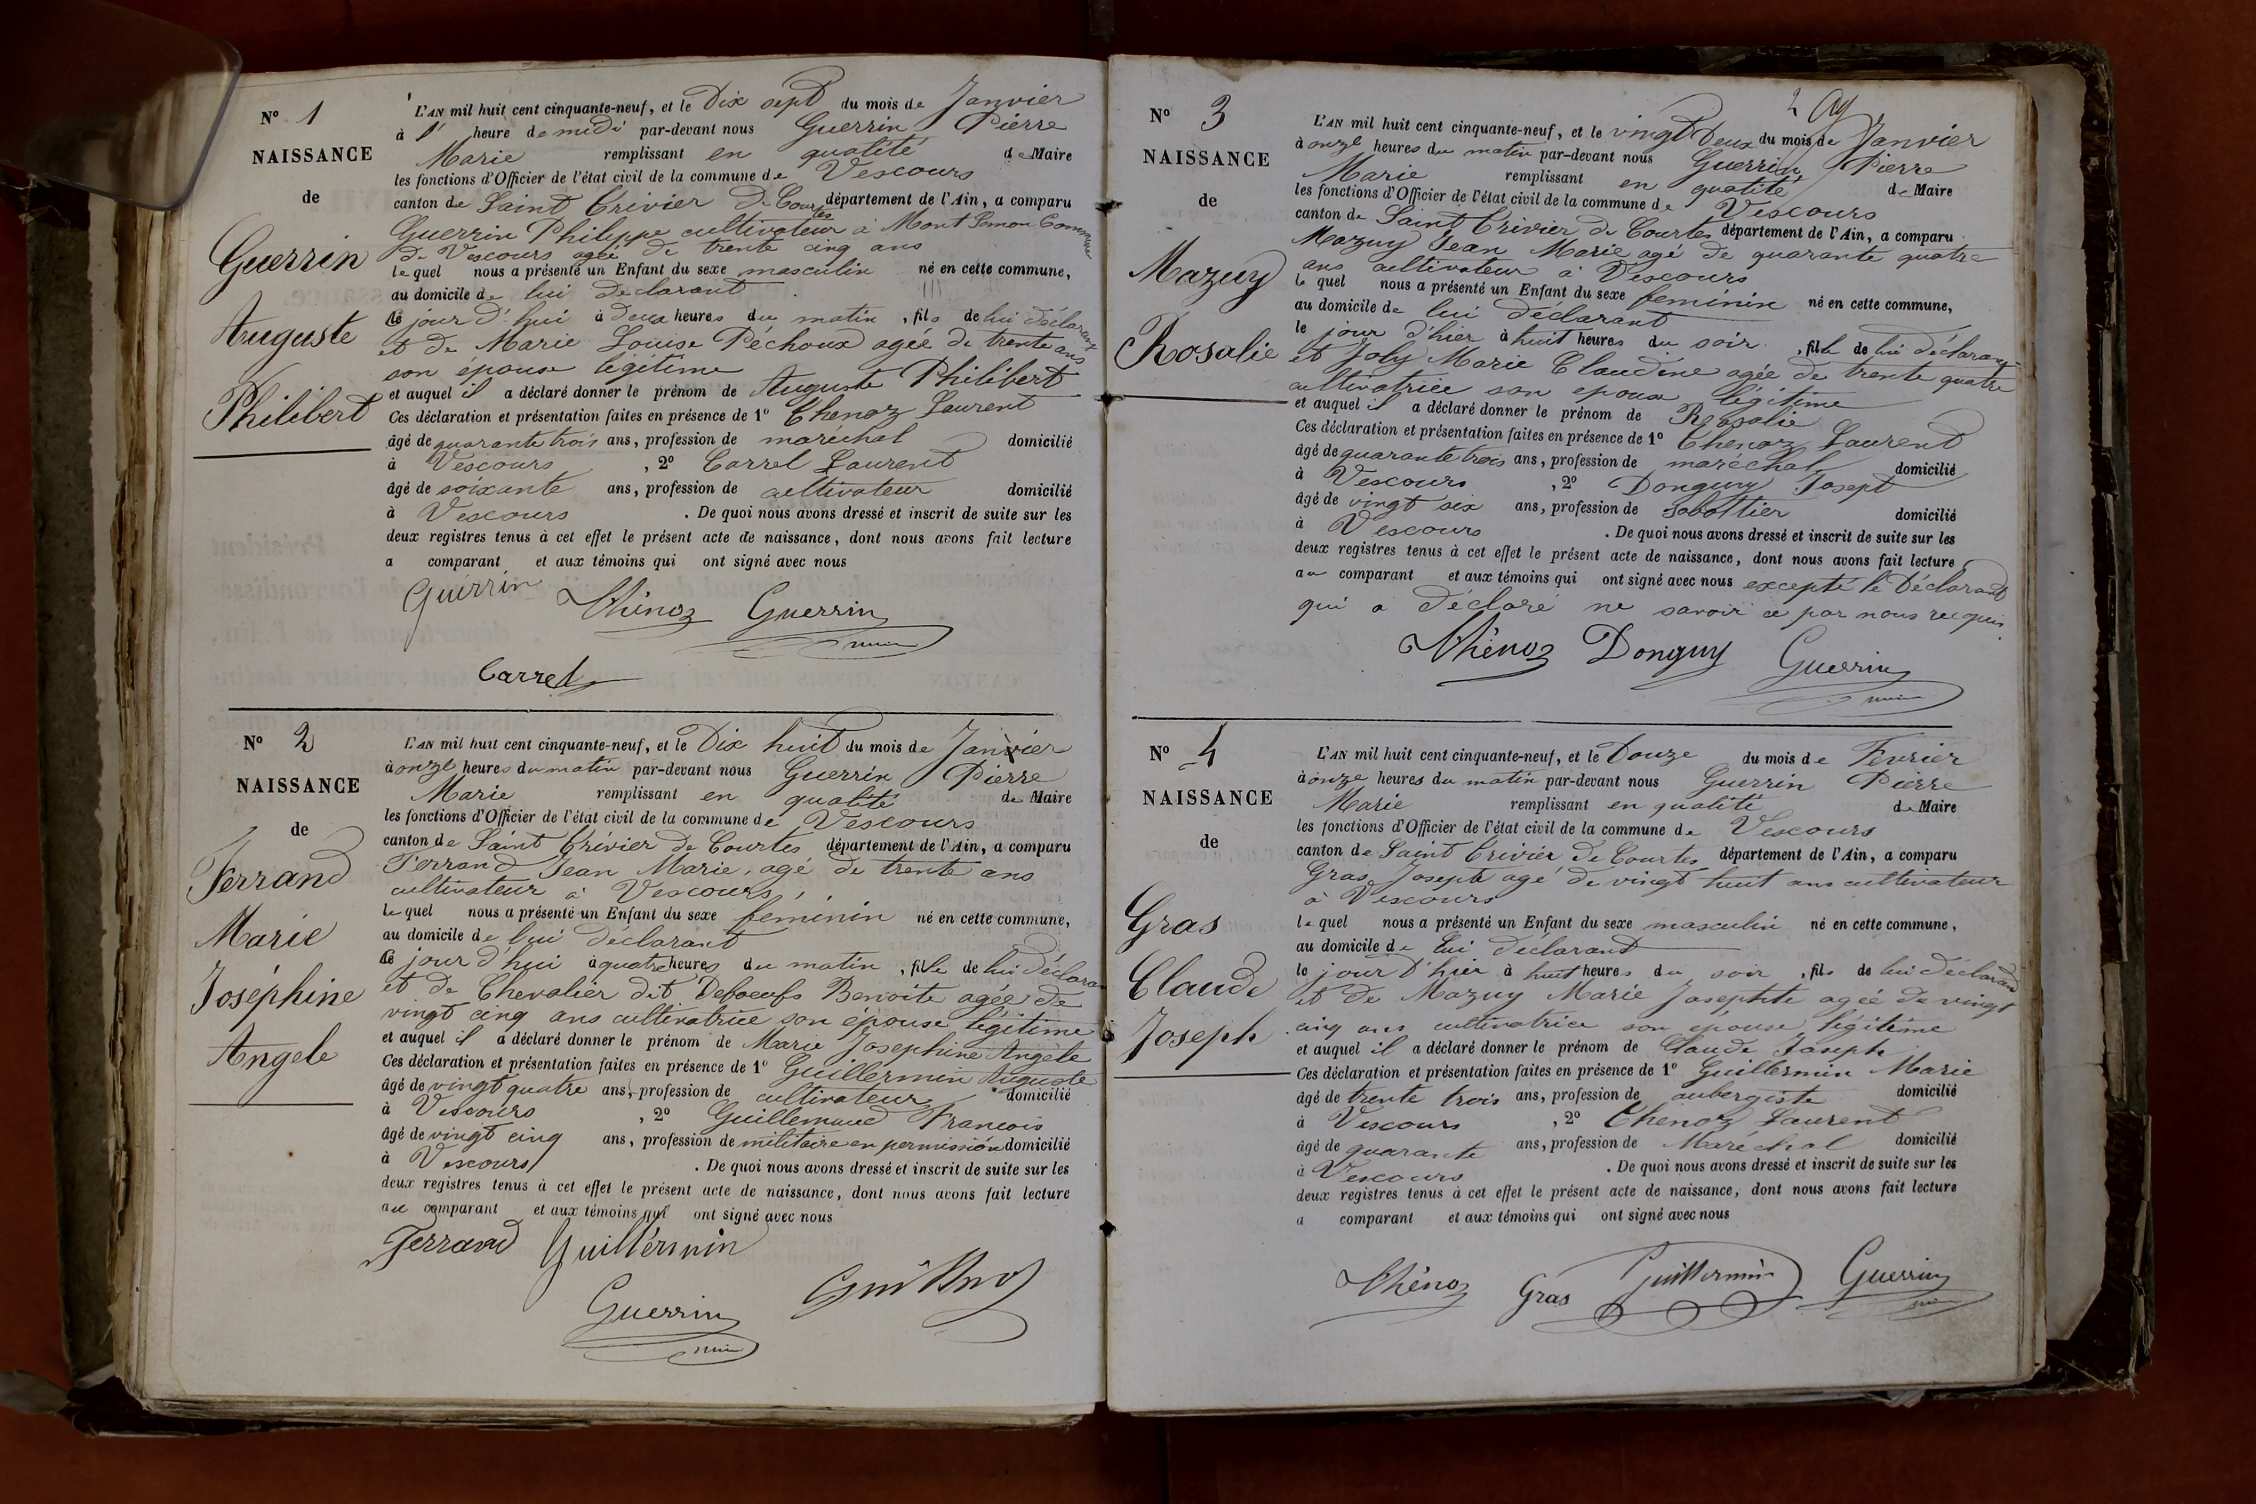 N° 1
NAISSANCE
de
Guerrin
Auguste
Philibert
L'AN mil huit cent cinquante-neuf, et le Dix sept du mois de Janvier
à 1 heure de midi par-devant nous Guerrin Pierre
Marie remplissant en qualité de Maire
les fonctions d'Officier de l'état civil de la commune de Vescours
canton de Saint Trivier De Courtes département de l'Ain, a comparu
Guerrin Philippe cultivateur à Mont Simon Commune
De Vescours agée de trente cinq ans
lequel nous a présenté un Enfant du sexe masculin né en cette commune,
au domicile de lui Déclarant
le jour d'hui à deux heures du matin, fils de lui déclarant
et de Marie Louise Péchoux agée de trente ans
son épouse légitime
et auquel il a déclaré donner le prénom de Auguste Philibert
Ces déclaration et présentation faites en présence de 1° Chenoz Laurent
âgé de quarante trois ans, profession de maréchal domicilié
à Vescours, 2° Carrel Laurent
âgé de soixante ans, profession de cultivateur domicilié
à Vescours. De quoi nous avons dressé et inscrit de suite sur les
deux registres tenus à cet effet le présent acte de naissance, dont nous avons fait lecture
a comparant et aux témoins qui ont signé avec nous
Guérrin Thénoz Guerrin
maire
Carrel
N° 2
NAISSANCE
de
Ferrand
Marie
Joséphine
Angele
L'AN mil huit cent cinquante-neuf, et le Dix huit du mois de Janvier
à onze heures du matin par-devant nous Guerrin Pierre
Marie remplissant en qualité de Maire
les fonctions d'Officier de l'état civil de la commune de Vescours
canton de Saint Trivier de Courtes département de l'Ain, a comparu
Ferrand Jean Marie, agé de trente ans
cultivateur à Vescours,
lequel nous a présenté un Enfant du sexe féminin né en cette commune,
au domicile de lui déclarant
le jour d'hui à quatre heures du matin, fille de lui Déclarant
et de Chevalier dit Deboeufs Benoite agée de
vingt cinq ans cultivatrice son épouse légitime
et auquel il a déclaré donner le prénom de Marie Josephine Angèle
Ces déclaration et présentation faites en présence de 1° Guillermin Auguste
âgé de vingt quatre ans, profession de cultivateur domicilié
à Vescours, 2° Guillemaud Francois
âgé de vingt cinq ans, profession de militaire en permission domicilié
à Vescours. De quoi nous avons dressé et inscrit de suite sur les
deux registres tenus à cet effet le présent acte de naissance, dont nous avons fait lecture
au comparant et aux témoins qui ont signé avec nous
Ferrand Guillérmin
Guerrin
maire
N° 3
NAISSANCE
de
Mazuy
Rosalie
L'AN mil huit cent cinquante-neuf, et le vingt Deux du mois de Janvier
à onze heures du matin par-devant nous Guerrin Pierre
Marie remplissant en qualité de Maire
les fonctions d'Officier de l'état civil de la commune de Vescours
canton de Saint Trivier de Courtes département de l'Ain, a comparu
Mazuy Jean Marie agé de quarante quatre
ans cultivateur à Vescours
le quel nous a présenté un Enfant du sexe feminin né en cette commune,
au domicile de lui déclarant
le jour d'hier à huit heures du soir, fille de lui déclarant
et Joly Marie Claudine agée de trente quatre
cultivatrice son epouse légitime
et auquel il a déclaré donner le prénom de Rosalie
Ces déclaration et présentation faites en présence de 1° Chenoz Laurent
âgé de quarante trois ans, profession de maréchal domicilié
à Vescours, 2° Donguy Josept
âgé de vingt six ans, profession de sabottier domicilié
à Vescours. De quoi nous avons dressé et inscrit de suite sur les
deux registres tenus à cet effet le présent acte de naissance, dont nous avons fait lecture
au comparant et aux témoins qui ont signé avec nous excepté le Déclarant
qui a déclaré ne savoir ce par nous recquis
Thénoz Donguy Guerrin
maire
N° 4
NAISSANCE
de
Gras
Claude
Joseph
L'AN mil huit cent cinquante-neuf, et le Douze du mois de Fevrier
à onze heures du matin par-devant nous Guerrin Pierre
Marie remplissant en qualité de Maire
les fonctions d'Officier de l'état civil de la commune de Vescours
canton de Saint Trivier de Courtes département de l'Ain, a comparu
Gras Joseph agé de vingt huit ans cultivateur
à Vescours
lequel nous a présenté un Enfant du sexe masculin né en cette commune,
au domicile de lui déclarant
le jour d'hier à huit heures du soir, fils de lui déclarant
et de Mazuy Marie Josephte agée de vingt
cinq ans cultivatrice son épouse légitime
et auquel il a déclaré donner le prénom de Claude Joseph
Ces déclaration et présentation faites en présence de 1° Guillermin Marie
âgé de trente trois ans, profession de aubergiste domicilié
à Vescours, 2° Chenoz Laurent
âgé de quarante ans, profession de Maréchal domicilié
à Vescours. De quoi nous avons dressé et inscrit de suite sur les
deux registres tenus à cet effet le présent acte de naissance, dont nous avons fait lecture
a comparant et aux témoins qui ont signé avec nous
Thénoz Gras Guillermin Guerrin